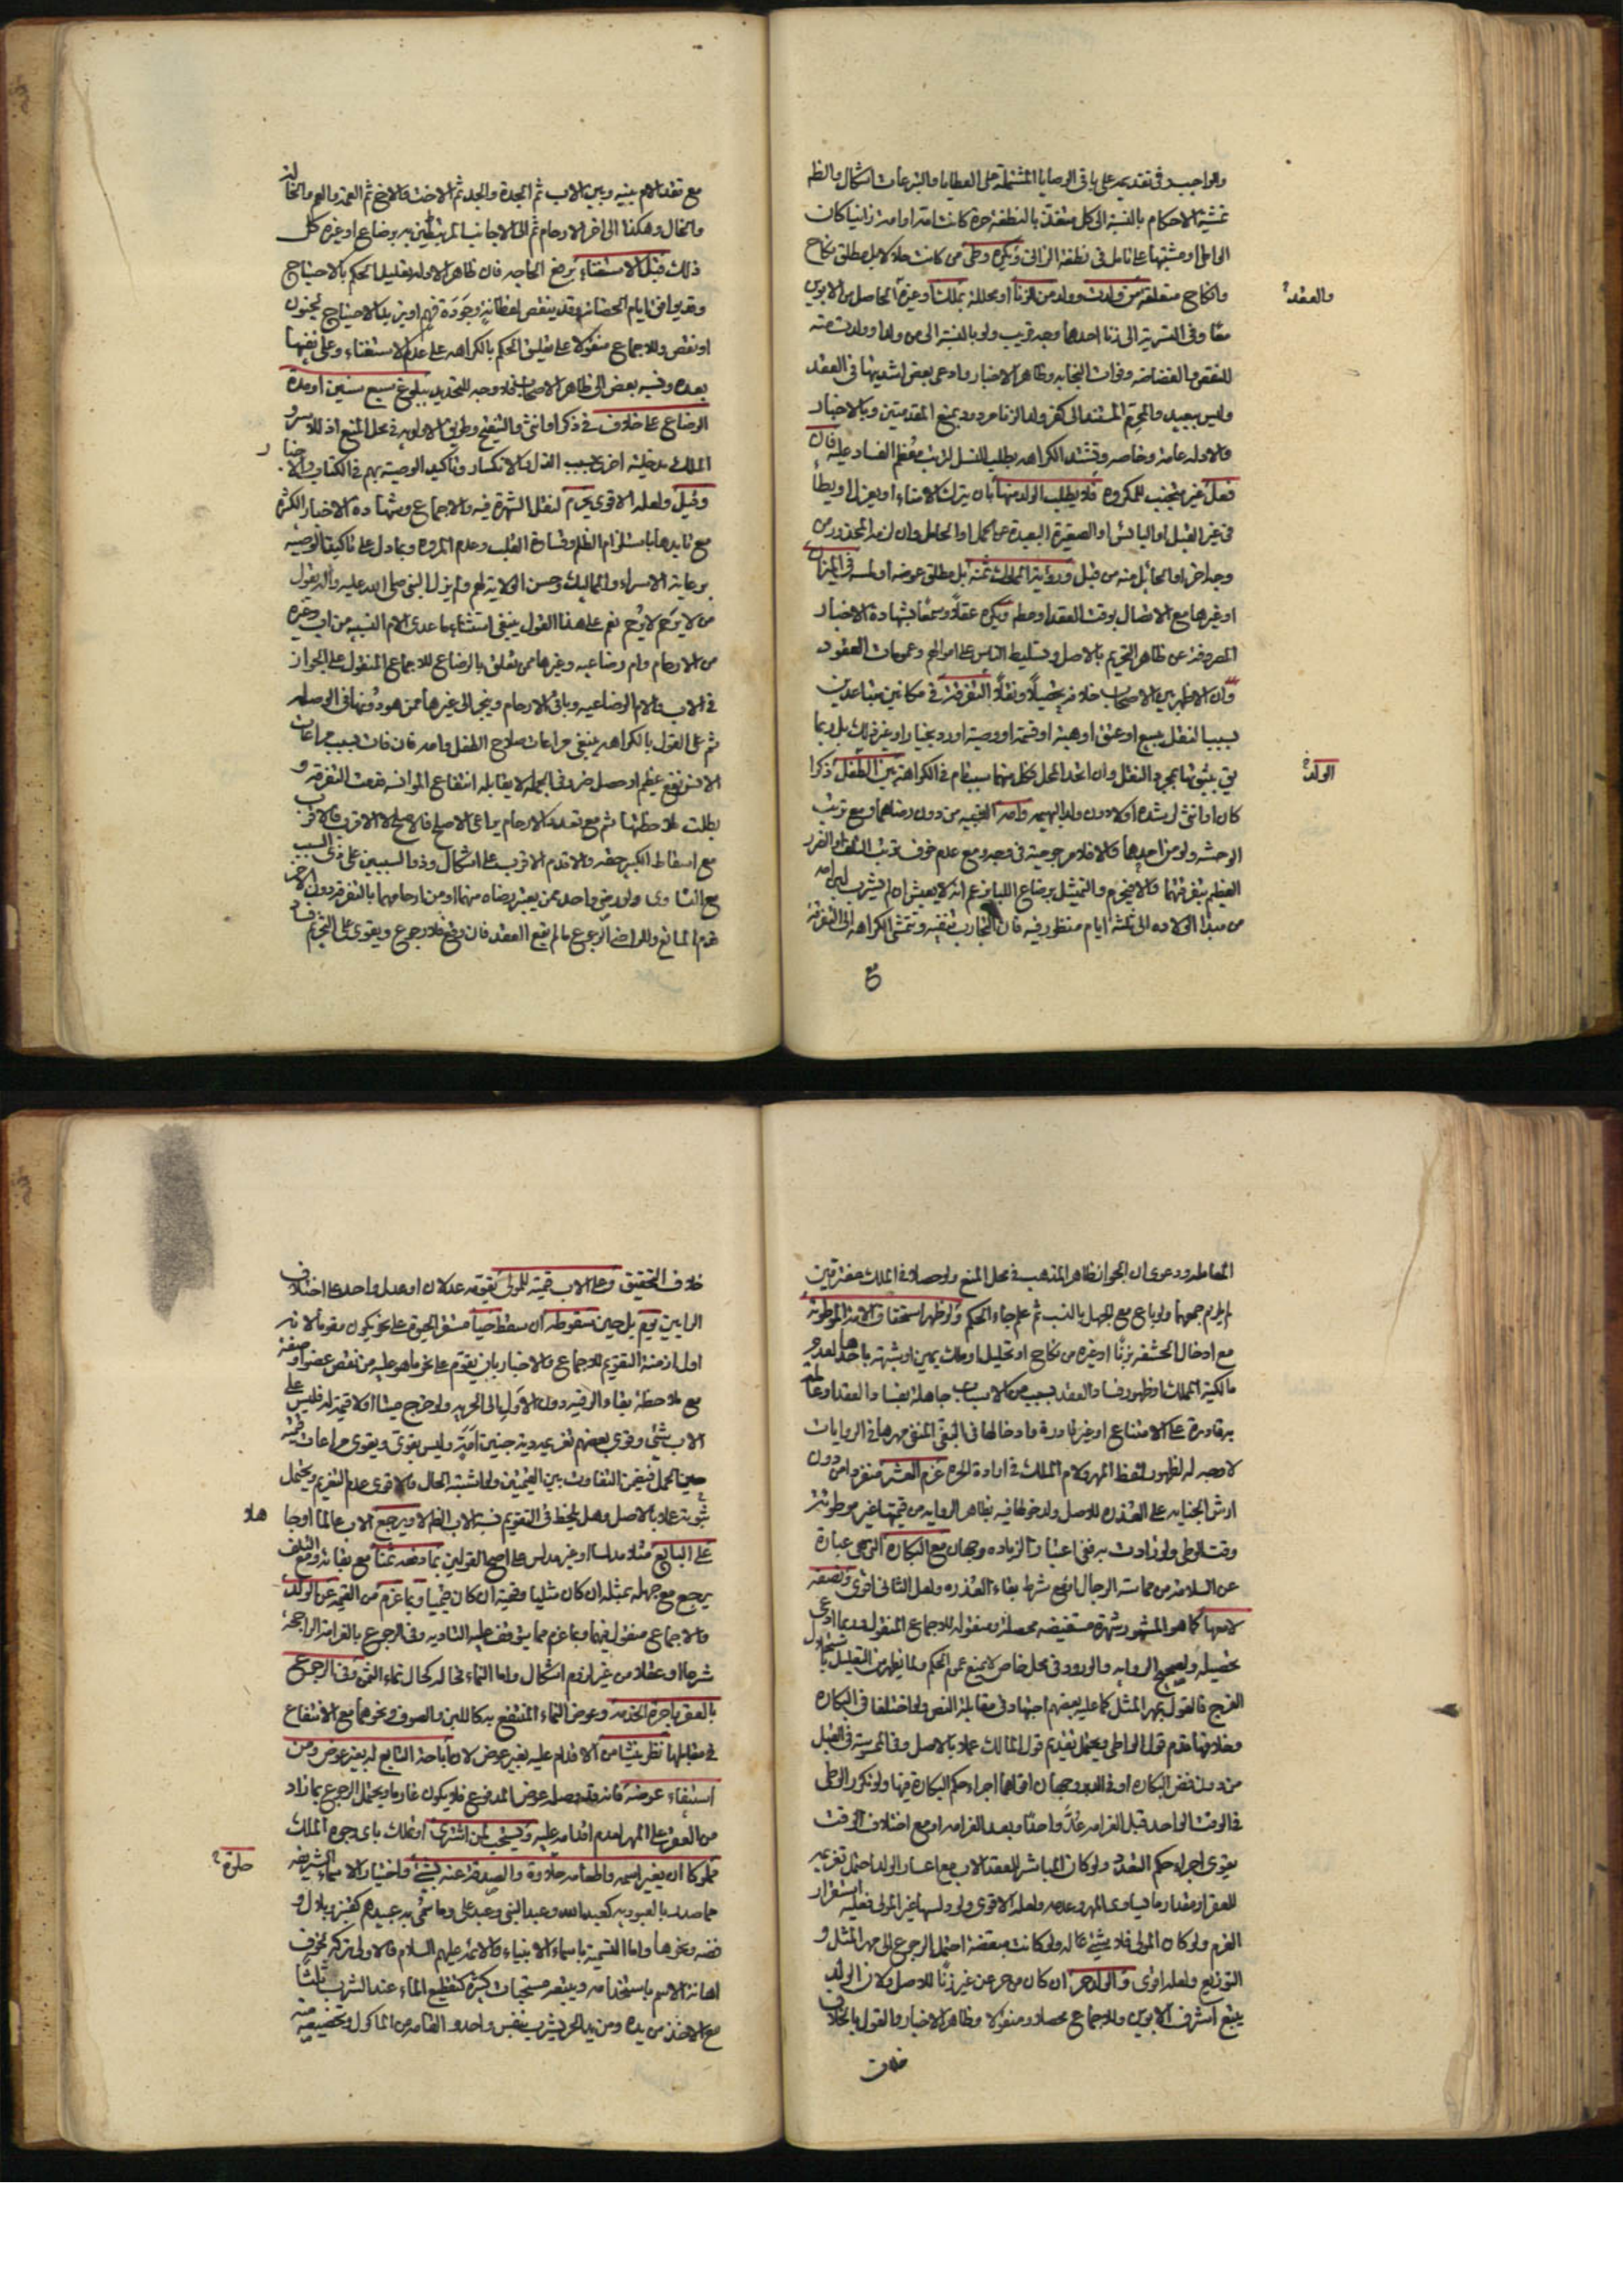 والواجب في تقديمه على باقي الوصايا المشتملة على العطايا والتبرعات اشكال والظم
تمشية الاحكام بالنسبة الى كل متغذ بالنطفة حرة كانت امه او امة زانيا كان
الواطي او مشتبها على تامل في نطفة الزاني ويكره وطي من كانت حلاله بمطلق نكاح
والعقد
وانكاح متعلقة من ولدت وولد من الزنا او محللة بملك او غيره الحاصل من الابوين
معا وفي التسرية الى زنا احدهما وجه قريب ولو بالنسبة الى من ولدا وولدت منه
للنقص والغضاضة وفوات النجابة وظاهر الاخبار وادعى بعض اشديتها في العقد
وليس ببعيد والتحريم المستند الى كفر ولد الزنا مردود بمنع المقدمتين وبالاخبار
والادلة عامة وخاصة وتشتد الكراهة بطلب النسل لترتب معظم الفساد عليه فان
فعل غير متجنب للمكروه فلا يطلب الولد منها بان يترك الامناء او يعزل او يطأ
في غير القبل او اليائس او الصغيرة البعيدة عن الحمل او الحامل وان لزم المحذور من
وجه اخر او الحائل منه من قبل ورؤية المملوك ثمنه بل مطلق عوضه او لمسه في الميزان
او غيرها مع الاتصال بوقت العقد او مطم ويكره عقلا وسمعا بشهادة الاخبار
المصروفة عن ظاهر التحريم بالاصل وتسليط الناس على اموالهم وعمومات العقود
وان الاظهر بين الاصحاب خلافه تحصيلا ونقلا التفرقة في مكانين متباعدين
بسبب النقل ببيع او عتق او هبة او قسمة او وصية او رد بخيار او غير ذلك بل ربما
الولد
كان او انثى لشدة اولا دون ولد البهيمة وامه الحقيقية من دون رضاهما ومع ترتب
الوحشة ولو من احدهما والا فلا مرجوحية في وجه ومع عدم خوف ترتب التلف او الضرر
العظيم بتفرقتهما والا فيحرم والتمثيل برضاع اللبا بزعم انه لا يعيش ان لم يشرب لبن امه
من مبدا الولادة الى ثلثة ايام منظور فيه فان التجارب تنفيه وتتمشى الكراهة الى التفرقة
مع
مع فقد الام بينه وبين الاب ثم الجدة والجد ثم الاخت والاخ ثم العمة والعم والخالة
والخال وهكذا الى اخر الارحام ثم الى الاجانب المرتبطين به برضاع او غيره كل
ذلك قبل الاستغناء برفع الحاجة فان ظاهر الادلة تعليل الحكم بالاحتياج
وقدروا في ايام الحضانة وقد ينقص لفطانته وجودة فهم او يزيد الاحتياج لجنون
او نقص وللاجماع منقولا على تعليق الحكم بالكراهة على عدم الاستغناء وعلى نفيها
بعده ونسبه بعض الى ظاهر الاصحاب فلا وجه للتحديد ببلوغ سبع سنين او مدة
الرضاع على خلاف في ذكر او انثى والتنقيح وطريق الاولوية في محل المنع اذ للاسر و
الملك مدخلية اخرى بسبب الذل والانكسار وتاكيد الوصية بهم في الكتاب والاخبار
وقيل ولعله الاقوى يحرم لنقل الشهرة فيه والاجماع وشهادة الاخبار الكثيرة
مع تاييدها باستلزام الظلم وقساوة القلب وعدم المروة وبما دل على تاكيد الوصية
برعاية الاسراء والمماليك وحسن الولاية لهم ولم يزل النبي صلى الله عليه واله يقول
من لا يرحم لا يرحم نعم على هذا القول ينبغي استثناء ما عدى الام النسبية من اب وغيره
من الارحام وام رضاعية وغيرها ممن تعلق بالرضاع للاجماع المنقول على الجواز
في الاب والام الرضاعية وباقي الارحام وينجر الى غيرها ممن هو دونها في الوصلة
ثم على القول بالكراهة ينبغي مراعات صلاح الطفل وامه فان فات بسبب مراعات
الانس نفع عظيم او حصل ضرر في الجملة لا يقابله انتفاع المؤانسة رفعت التفرقة و
بطلت ملاحظتها ثم مع تعدد الارحام يراعى الاصلح فالاصلح لا الاقرب فالاقرب
مع اسقاط الكبير حقه والاقدم الاقرب على اشكال وذو السببين على ذي السبب
مع التساوي ولو رضي واحد ممن يعتبر رضاه منهما او من ارحامهما بالتفرقة دون الاخر
قدم المانع وللراضي الرجوع ما لم يقع العقد فان وقع فلا رجوع ويقوى على التحريم فساد
المعاملة ودعوى ان الجواز ظاهر المذهب في محل المنع ولو حصلا في الملك مفترقين
لم يلزم جمعهما ولو باع مع الجهل بالنسب ثم علم جاء الحكم ولو ظهر استحقاق الامة الموطوئة
مع ادخال الحشفة بزنا او غيره من نكاح او تحليل او ملك يمين او شبهة باحدها لعدم
مالكية المملك او ظهور فساد العقد بسبب من الاسباب جاهلة بفساد العقد او عالمة
به قادرة على الامتناع او غير قادرة وادخالها في البغي المنفي مهرها في الروايات
لا وجه له لظهور لفظ المهر ولام الملك في ارادة الحرة غرم العشر منفردا من دون
ارش الجناية على العذرة للاصل ولدخولها فيه بظاهر الرواية من قيمتها غير موطوئة
وقت الوطي ولو زادت به ففي اعتبار الزيادة وجهان مع البكارة التي هي عبارة
عن السلامة من مماسة الرجال او مع شرط بقاء العذرة ولعل الثاني اقوى ونصفه
لا معها كما هو المشهور شهرة مستفيضة محصلة ومنقولة للاجماع المنقول وربما ادعى
تحصيله ولصحيح الرواية والورود في محل خاص لا يمنع عموم الحكم ولما يظهر من التعليل باستحلال
الفرج فالقول بمهر المثل كما عليه بعضهم اجتهاد في مقابلة النص ولو اختلفا في البكارة
وخلافها قدم قول الواطي ويحتمل تقديم قول المالك عملا بالاصل وفي الممسوسة في القبل
من دون فض البكارة او في الدبر وجهان اقواهما اجراء حكم البكارة فيها ولو تكرر الوطي
في الوقت الواحد قبل الغرامة عد واحدا وبعد الغرامة او مع اختلاف الوقت
يقوى اجراء حكم التعدد ولو كان المباشر للعقد الاب مع اعسار الولد احتمل تغريمه
للعقر او مقدار ما يساوى المهر وعدمه ولعله الاقوى ولو دلسها غير المولى فعليه استقرار
الغرم ولو كان المولى فلا شيء له ولو كانت مبعضة احتمل الرجوع الى مهر المثل و
التوزيع ولعله اقوى والولد حر ان كان من حر عن غير زنا للاصل ولان الولد
يتبع اشرف الابوين وللاجماع محصلا ومنقولا وظاهر الاخبار والقول بالخلاف
خلاف
خلاف التحقيق وعلى الاب قيمته للمولى يقومه عدلان او عدل واحد على اختلاف
الرايين يوم بل حين سقوطه ان سقط حيا مستقر الحيوة على نحو يكون مقوما لانه
اول ازمنة التقويم للاجماع والاخبار بان يقوم على نحو ما هو عليه من نقص عضو او صفة
مع ملاحظة بقاء الرقية دون الاول الى الحرية ولو خرج ميتا او لا قيمة له فليس على
الاب شيء وقوى بعضهم تغريمه دية جنين امة وليس بقوى ويقوى مراعات قيمته
حين الحمل فيغرم التفاوت بين القيمتين ولو اشتبه الحال فالاقوى عدم التغريم ويحتمل
ثبوته عملا بالاصل وهل يلحظ في التقويم نسبة الاب الظم لا ويرجع الاب عالما او جاهلا
على البائع مثلا مدلسا او غير مدلس على اصح القولين بما دفعه ثمنا مع بقائه ومع التلف
يرجع مع جهله بمثله ان كان مثليا وقيمته ان كان قيميا وبما غرم من القيمة عن الولد
والاجماع منقول فيهما وبما غرم مما يتوقف عليه التادية وفي الرجوع بالغرامة الراجحة
شرعا او عقلا من غير لزوم اشكال واما النماء فحاله كحال نماء الثمن وفي الرجوع
بالعقر باجرة الخدمة وعوض النماء المنتفع به كاللبن والصوف ونحوهما مع الانتفاع
في مقابلها نظر ينشا من الاقدام عليه بغير عوض لا وما باحة البائع له بغير عوض ومن
استيفاء عوضه فانه قد وصله عوض المدفوع فلا يكون غارما ويحتمل الرجوع بما زاد
من العقر على المهر لعدم اقدامه عليه ويستحب لمن اشترى او تملك باي وجوه الملك
حلوة
مملوكا ان يغير اسمه واطعامه حلاوة والصدقة عنه بشيء واختيار الاسماء الشريفة
مما صدر بالعبودية كعبد الله وعبد النبي وعبد علي وما سمي به عبيدهم كقنبر وبلال و
فضة ونحوها واما التسمية باسماء الانبياء والائمة عليهم السلام فالاولى تركه لخوف
اهانة الاسم باستخدامه ويتبعه مستحبات كثيرة كتقطيع الماء عند الشرب ثلثا
مع الاخذ من يده ومن يد الحر يشرب بنفس واحد والقامه من الماكول وتخصيصه منه